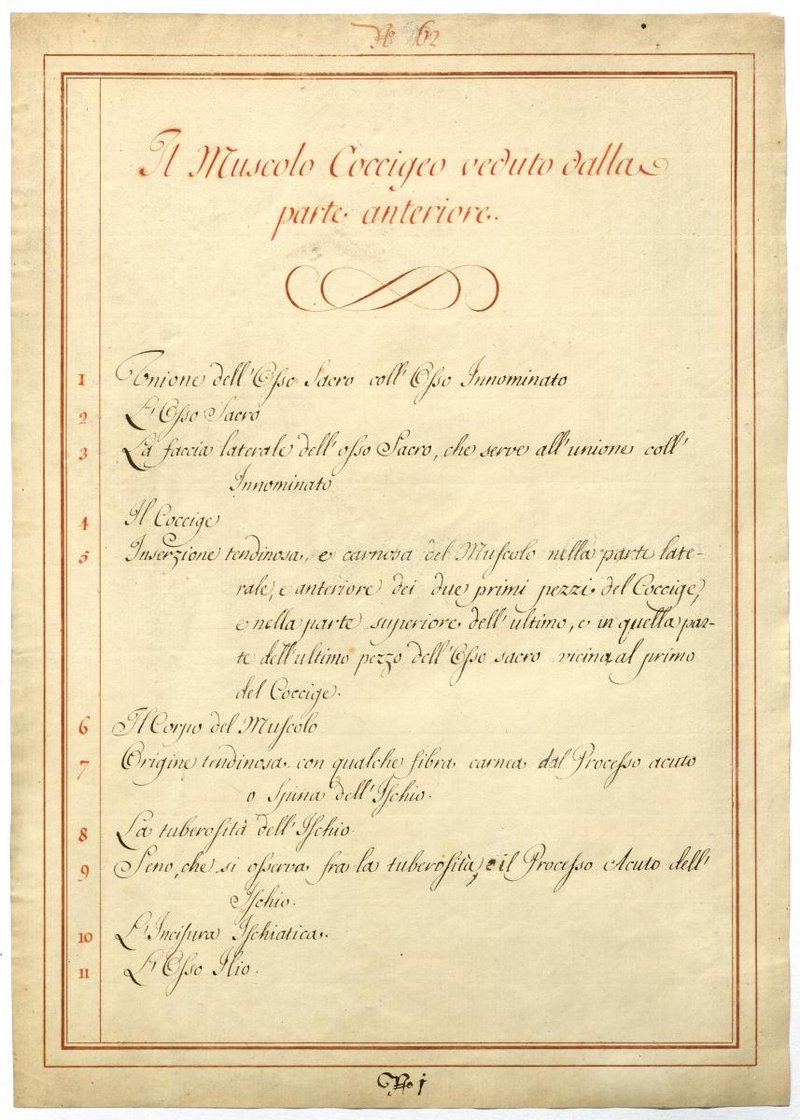 No 62
Il Muscolo Coccigeo veduto dalla
parte anteriore.
1 Unione dell' Osso Sacro coll' Osso Innominato
2 L' Osso Sacro
3 La faccia laterale dell' osso Sacro, che serve all' unione coll'
Innominato
4 Il Coccige
5 Inserzione tendinosa, e carnosa del Muscolo nella parte late-
rale, e anteriore dei due primi pezzi del Coccige,
e nella parte superiore dell' ultimo, e in quella par-
te dell' ultimo pezzo dell' Osso sacro vicina al primo
del Coccige.
6 Il Corpo del Muscolo
7 Origine tendinosa con qualche fibra carnea dal Processo acuto
o Spina dell' Ischio.
8 La tuberosità dell' Ischio
9 Seno, che si osserva fra la tuberosità, e il Processo Acuto dell'
Ischio.
10 L' Incisura Ischiatica.
11 L' Osso Ilio.
No 1